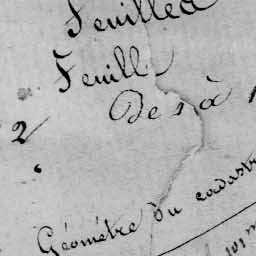 Feuille
Feuille
2
Des à
Géomètre du cadastr